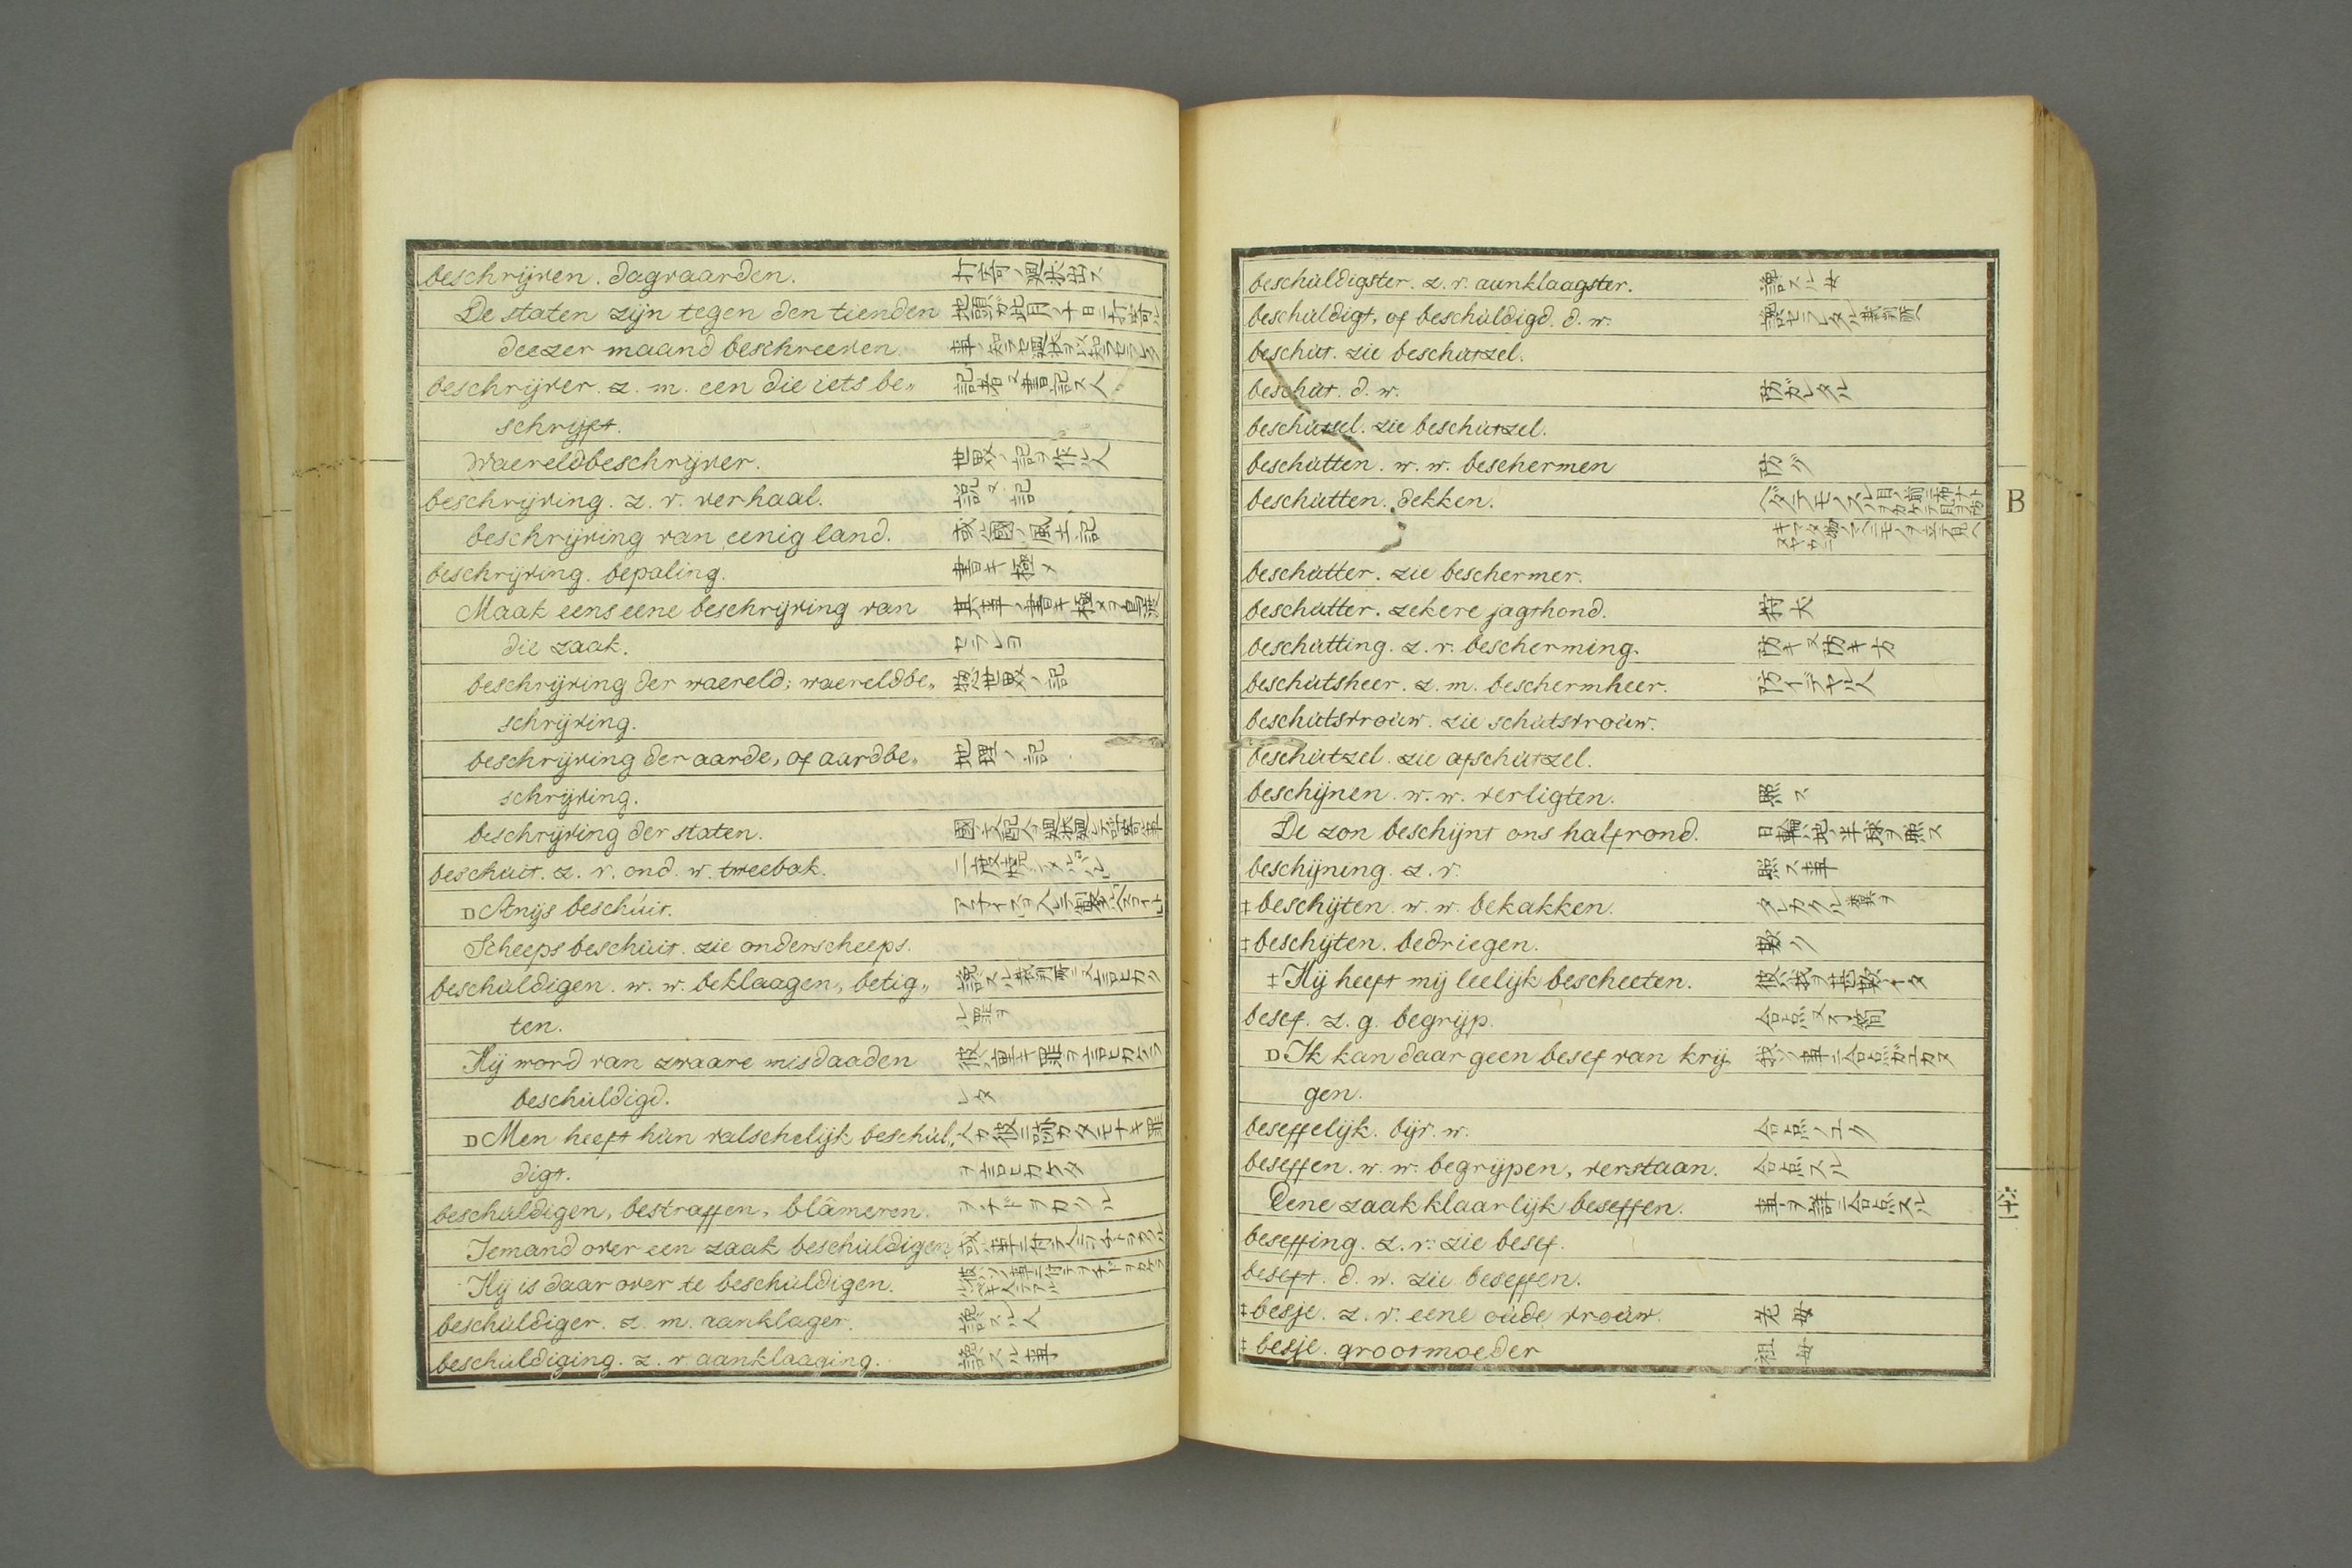 beschrijven. dagvaarden. 打寄ノ廻状出ス
De staten zijn tegen den tienden
deezer maand beschreeven.
beschrijver. z. m. een die iets be„ 記者又書記ス人
schrijft.
Waereldbeschrijver. 世界ノ記ヲ作ル人
beschrijving. z. v. verhaal. 説又記
beschrijving van eenig land. 或ル國ノ風土記
beschrijving. bepaling. 書キ極メ
Maak eens eene beschrijving van 其事ノ書キ極メヲ為洪
die zaak. セラレヨ
beschrijving der waereld; waereldbe„ 惣世界ノ記
schrijving.
beschrijving der aarde, of aardbe„ 地理ノ記
schrijving.
beschrijving der staten.
beschuit. z. v. ond. w. tweebak.
D Anijs beschuit.
Scheeps beschuit. zie onder scheeps.
beschuldigen. w. w. beklaagen, betig„
ten. ル罪ヲ
Hij word van zwaare misdaaden 彼ハ重キ罪ヲ言ヒカケラ
beschuldigd. レタ
D Men heeft hun valschelijk beschul„
digt. ヲ言ヒカケタ
beschuldigen, bestraffen, blâmeren. ヲチドヲカツル
Iemand over een zaak beschuldigen.
Hij is daar over te beschuldigen.
beschuldiger. z. m. aanklager. 讒スル人
beschuldiging. z. v. aanklaaging. 讒スル事
beschuldigster. z. v. aanklaagster. 讒スル女
beschuldigt, of beschuldigd. d. w.
beschut. zie beschutzel.
beschut. d. w. 防ガレタル
beschutsel. zie beschutzel.
beschutten. w. w. beschermen 防グ
beschutten. dekken.
beschutter. zie beschermer.
beschutter. zekere jagthond. 狩犬
beschutting. z. v. bescherming. 防キ又防キ方
beschutsheer. z. m. beschermheer. 防イデヤル人
beschutsvrouw. zie schutsvrouw.
beschutzel. zie afschutzel.
beschijnen. w. w. verligten. 照ス
De zon beschijnt ons halfrond. 日輪ハ地ノ半球ヲ照ス
beschijning. z. v. 照ス事
‡ beschijten. w. w. bekakken. クレカクル糞ヲ
‡ beschijten. bedriegen. 欺ク
‡ Hij heeft mij leelijk bescheeten.
besef. z. g. begrijp. 合点又了簡
D Ik kan daar geen besef van krij„
gen.
beseffelijk. bijv. w. 合点ノユク
beseffen. w. w. begrijpen, verstaan. 合点スル
Eene zaak klaarlijk beseffen. 事ヲ詳ニ合点スル
beseffing. z. v. zie besef.
beseft. d. w. zie beseffen.
‡ besje. z. v. eene oude vrouw. 老母
‡ besje. grootmoeder 祖母
B